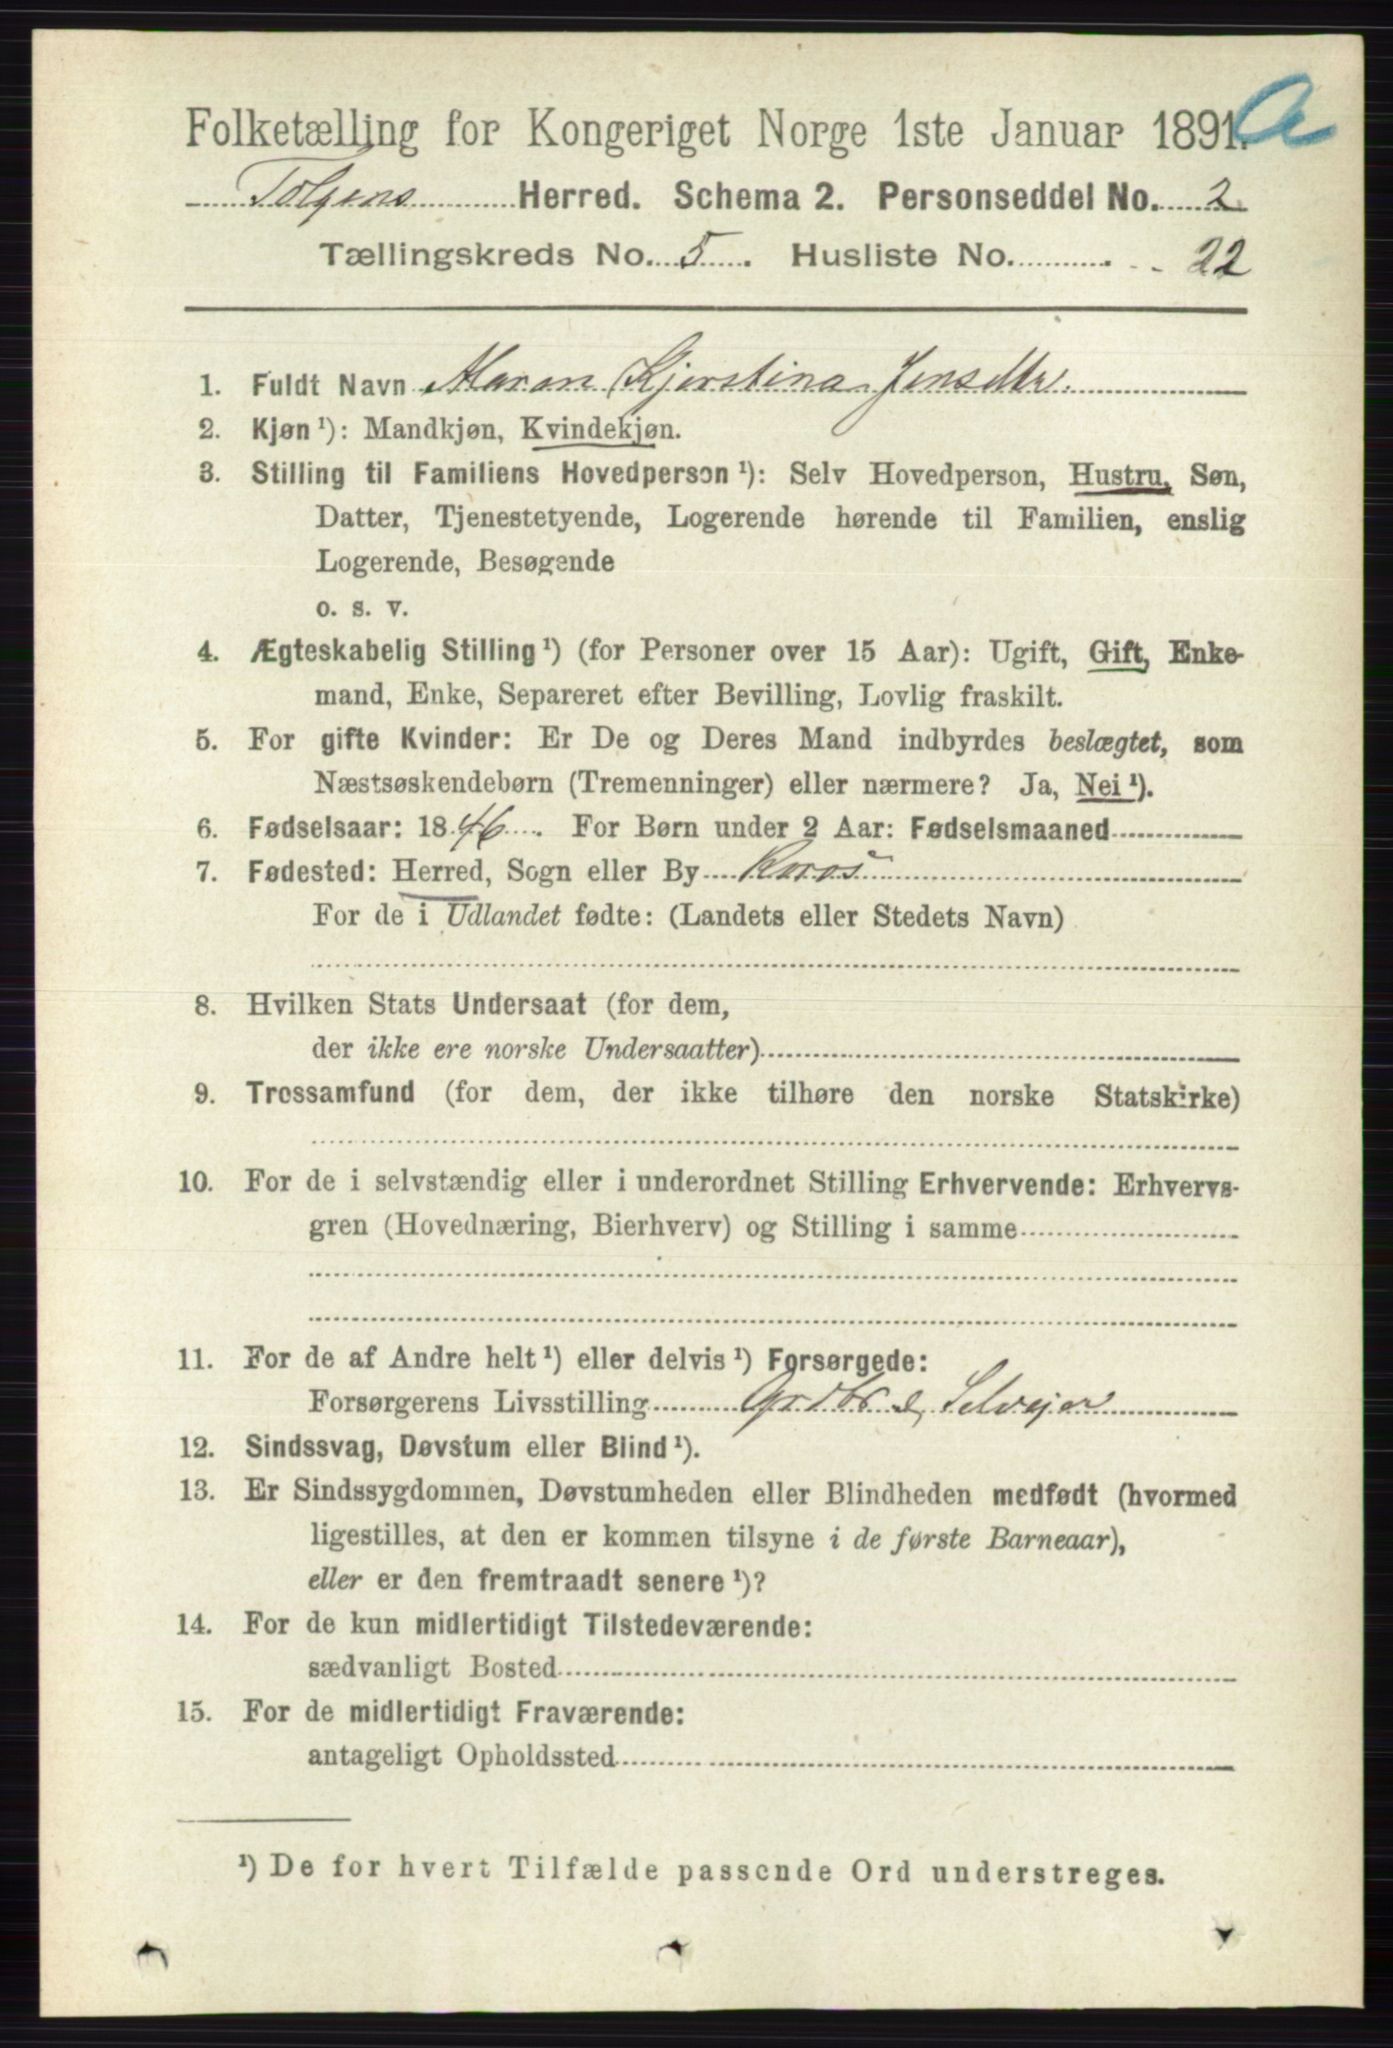 Folketælling for Kongeriget Norge 1ste Januar 1891. a
Tolgens Herred. Schema 2. Personseddel No. 2
Tællingskreds No. 5. Husliste No. 22
1. Fuldt Navn Maren Kjerstina Jensdtr.
2. Kjøn ¹): Mandkjøn, Kvindekjøn.
3. Stilling til Familiens Hovedperson ¹): Selv Hovedperson, Hustru, Søn,
Datter, Tjenestetyende, Logerende hørende til Familien, enslig
Logerende, Besøgende
o. s. v.
4. Ægteskabelig Stilling ¹) (for Personer over 15 Aar): Ugift, Gift, Enke-
mand, Enke, Separeret efter Bevilling, Lovlig fraskilt.
5. For gifte Kvinder: Er De og Deres Mand indbyrdes beslægtet, som
Næstsøskendebørn (Tremenninger) eller nærmere? Ja, Nei ¹).
6. Fødselsaar: 1846. For Børn under 2 Aar: Fødselsmaaned
7. Fødested: Herred, Sogn eller By Røros
For de i Udlandet fødte: (Landets eller Stedets Navn)
8. Hvilken Stats Undersaat (for dem,
der ikke ere norske Undersaatter)
9. Trossamfund (for dem, der ikke tilhøre den norske Statskirke)
10. For de i selvstændig eller i underordnet Stilling Erhvervende: Erhvervs-
gren (Hovednæring, Bierhverv) og Stilling i samme
11. For de af Andre helt ¹) eller delvis ¹) Forsørgede:
Forsørgerens Livsstilling Grdbr. & Selvejer
12. Sindssvag, Døvstum eller Blind ¹).
13. Er Sindssygdommen, Døvstumheden eller Blindheden medfødt (hvormed
ligestilles, at den er kommen tilsyne i de første Barneaar),
eller er den fremtraadt senere ¹)?
14. For de kun midlertidigt Tilstedeværende:
sædvanligt Bosted
15. For de midlertidigt Fraværende:
antageligt Opholdssted
¹) De for hvert Tilfælde passende Ord understreges.